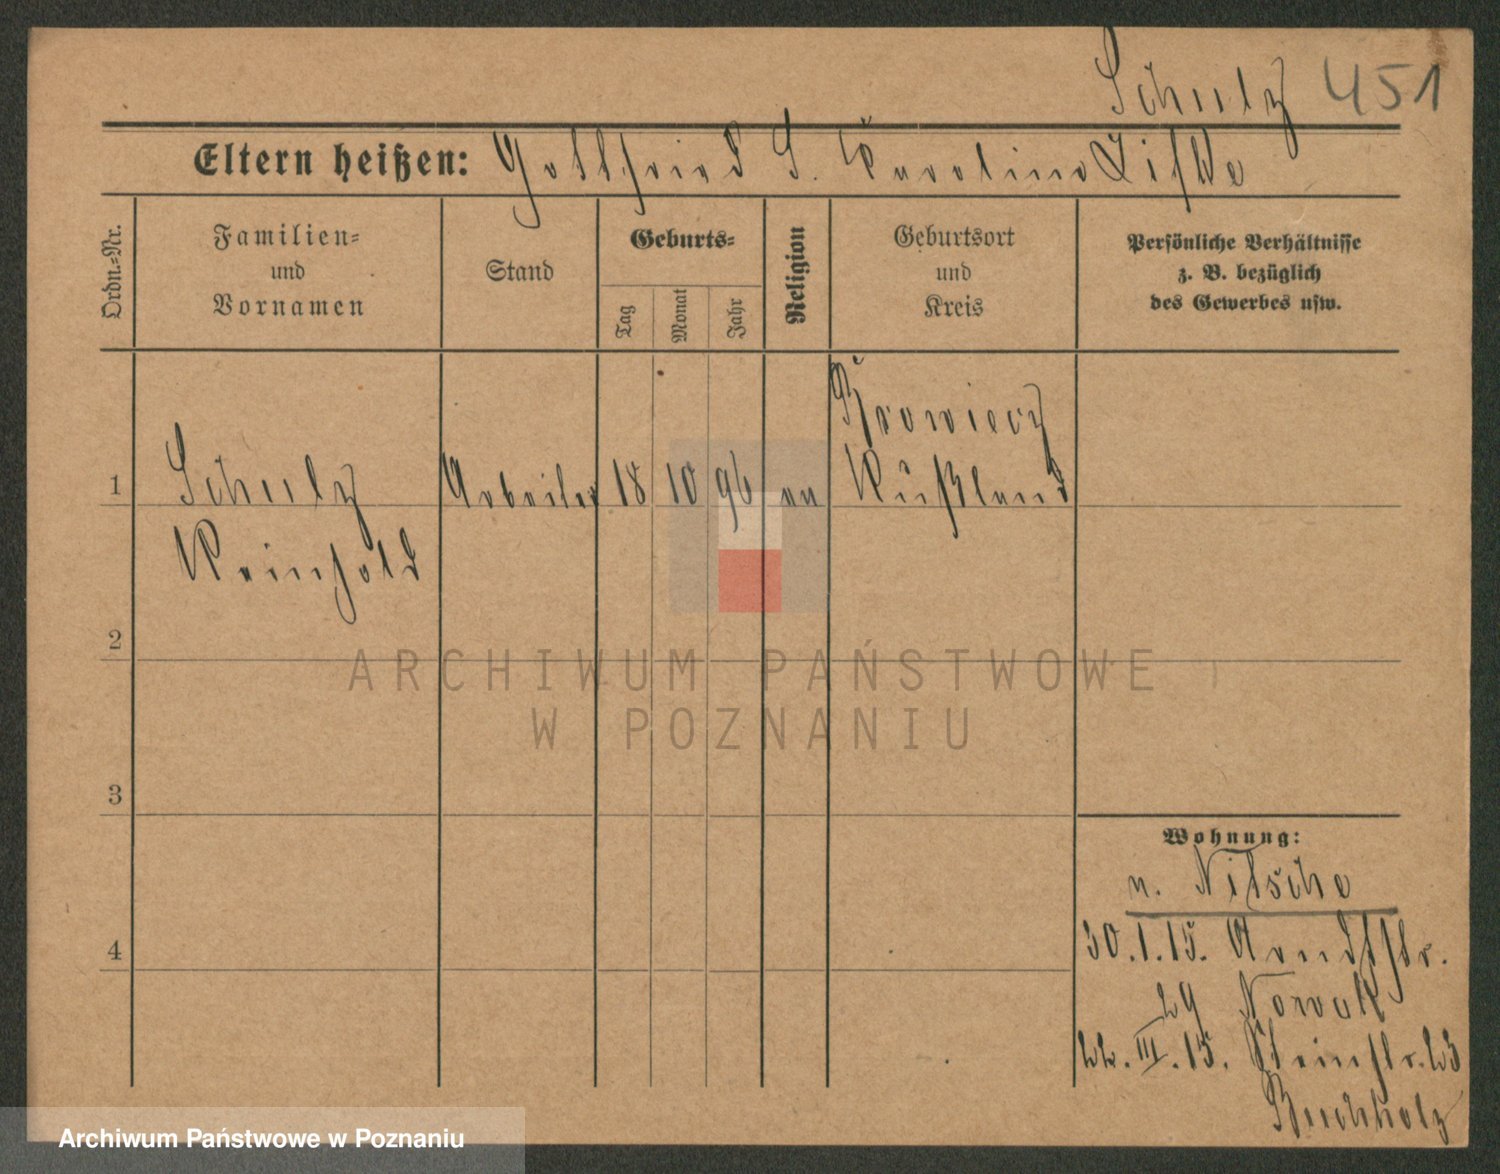 Schulz 451
Eltern heißen: Gottfried S. Karolina Liske
Ordn.-Nr.
Familien-
und
Vornamen
Stand
Geburts-
Tag
Monat
Jahr
Religion
Geburtsort
und
Kreis
Persönliche Verhältnisse
z. B. bezüglich
des Gewerbes usw.
Krowiecz
1 Schulz Arbeiter 18 10 96 Rußland
Reinhold
2
3
4
Wohnung:
n. Nitsche
30.1.15. Arndtstr.
29 Nowak
22.III.15. Steinstr. 23
Buchholz
ARCHIWUM PAŃSTWOWE
W POZNANIU
Archiwum Państwowe w Poznaniu